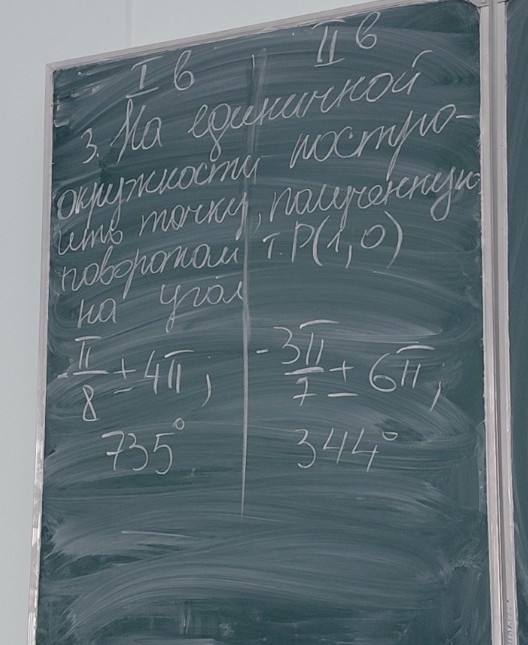 I в II в
3. На единичной
окружности постро-
ить точку, полученную
поворотом т. P(1, 0)
на угол
-π/8 ± 4π; -3π/7 ± 6π;
735° 344°